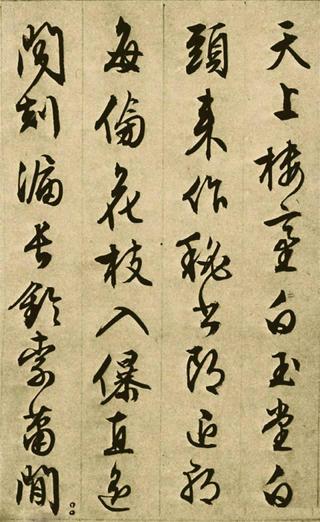 天上樓臺白玉堂白
頭來作秘書郎退朝
每傍花枝入儤直遙
聞刻漏長鈴索蕭閒